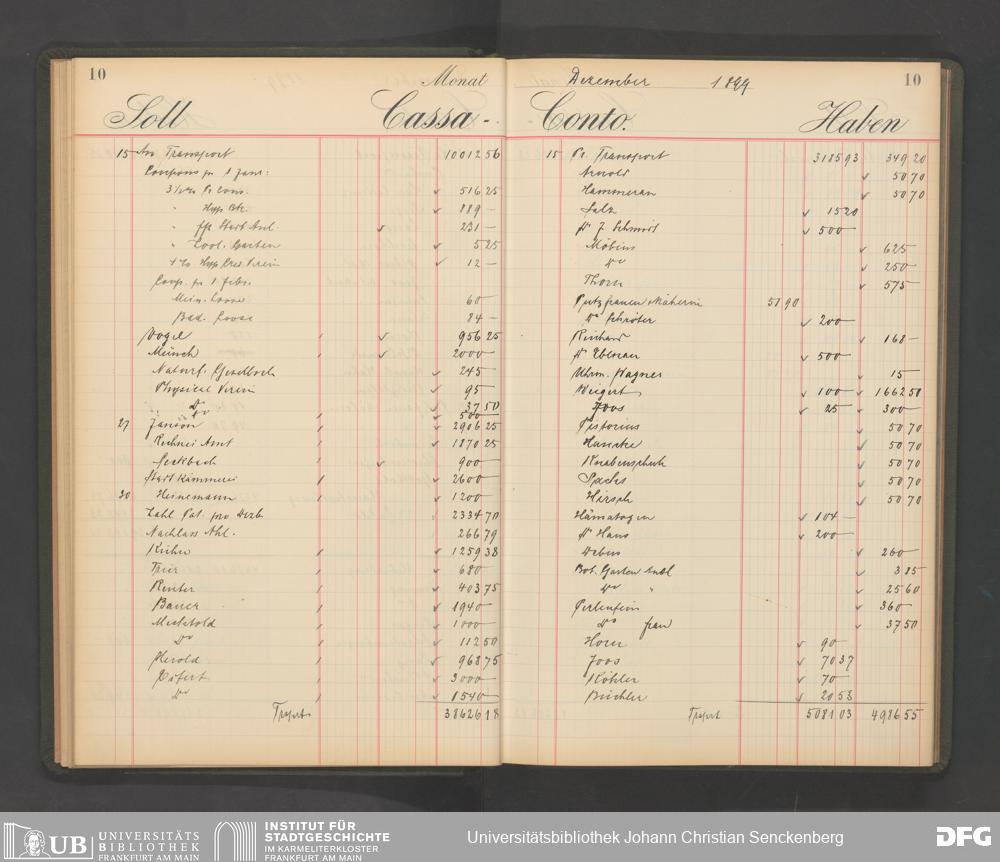 10 Monat
Soll Cassa -
15 An Transport 10012 56
Coupons pr 1 Janr:
3½% Pr Cons. 516 25
" Hyp. Bk. 889 —
" Stadt Anl. 231 —
" Zool. Garten 5 25
4% Hyp. Cred. Verein 12 —
Coup. pr 1 Febr.
Mein. Loose 60 —
Bad. Loose 84 —
Vogel 956 25
Münch 2000 —
Naturf. Gesellsch 245 —
Physical Verein 95 —
Do 37 50
" Do 500 —
27 Janson 2906 25
Rechnei Amt 1870 25
Seckbach 900 —
Stadt Kämmerei 2600 —
30 Heinemann 1200 —
Zahl. Pat. pro Dezb. 2334 70
Nachlass Ahl. 266 79
Kühn 1259 38
Trier 680 —
Reuter 403 75
Bauer 1940 —
Mettebold 1000 —
Do 112 50
Herold 968 75
3000 —
Do 1540 —
Trsprt 38626 18
Dezember 1899 10
Conto. Haben
15 Pr. Transport 3185 93 349 20
Arnold 50 70
Hammeran 50 70
Salz 15 20
Dr F. Schmidt 500 —
Möbius 625
Do 250 —
Thorn 575
Putzfrauen Näherin 51 90
Dr Schröter 200 —
Reichard 168 —
Dr Ebenau 500 —
Uhrm. Wagner 15 —
Weigert 100 — 1662 50
Joos 25 — 300 —
Pistorius 50 70
50 70
Knabenschuh 50 70
Sachs 50 70
Hirsch 50 70
Hämatogen 104 —
Dr Hans 200 —
Debus 260 —
Bot. Garten Anl 3 85
Do " 25 60
Perlenfein 360 —
Do frau 37 50
Horn 90 —
Joos 70 37
Köhler 70 —
Büchler 20 53
Trsprt 5081 03 4986 55
UB UNIVERSITÄTS
BIBLIOTHEK
FRANKFURT AM MAIN
INSTITUT FÜR
STADTGESCHICHTE
IM KARMELITERKLOSTER
FRANKFURT AM MAIN
Universitätsbibliothek Johann Christian Senckenberg
DFG